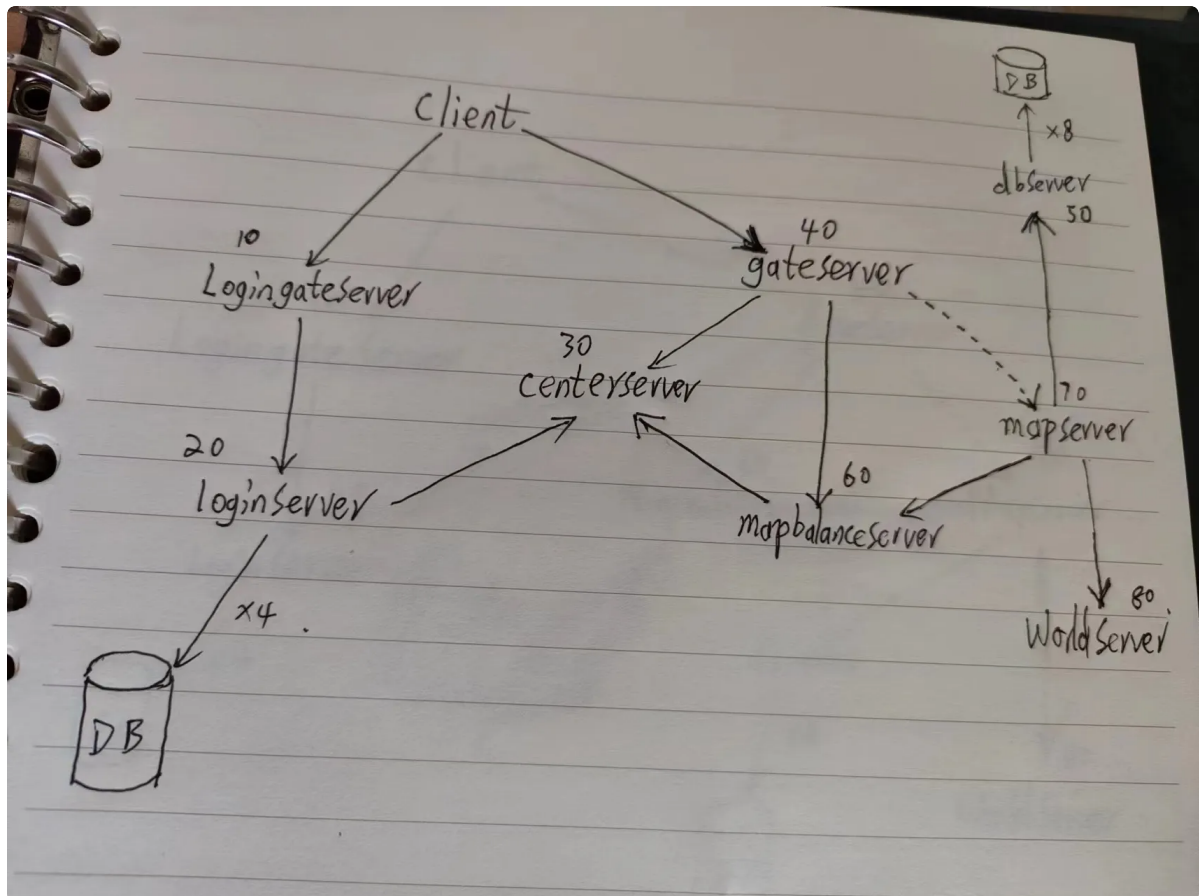 Client
DB
x8
dbserver
50
10
Logingateserver
40
gateserver
30
centerserver
70
mapserver
20
loginserver
60
mapbalanceserver
80
Worldserver
x4
DB